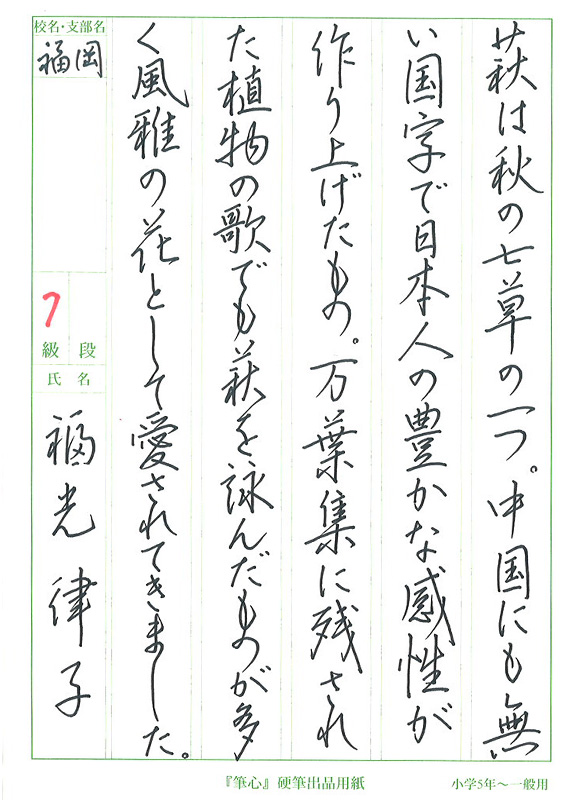 萩は秋の七草の一つ。中国にも無
い国字で日本人の豊かな感性が
作り上げたもの。万葉集に残され
た植物の歌でも萩を詠んだものが多
く風雅の花として愛されてきました。
校名・支部名
福岡
7
級 段
氏 名
福光律子
『筆心』硬筆出品用紙
小学5年〜一般用